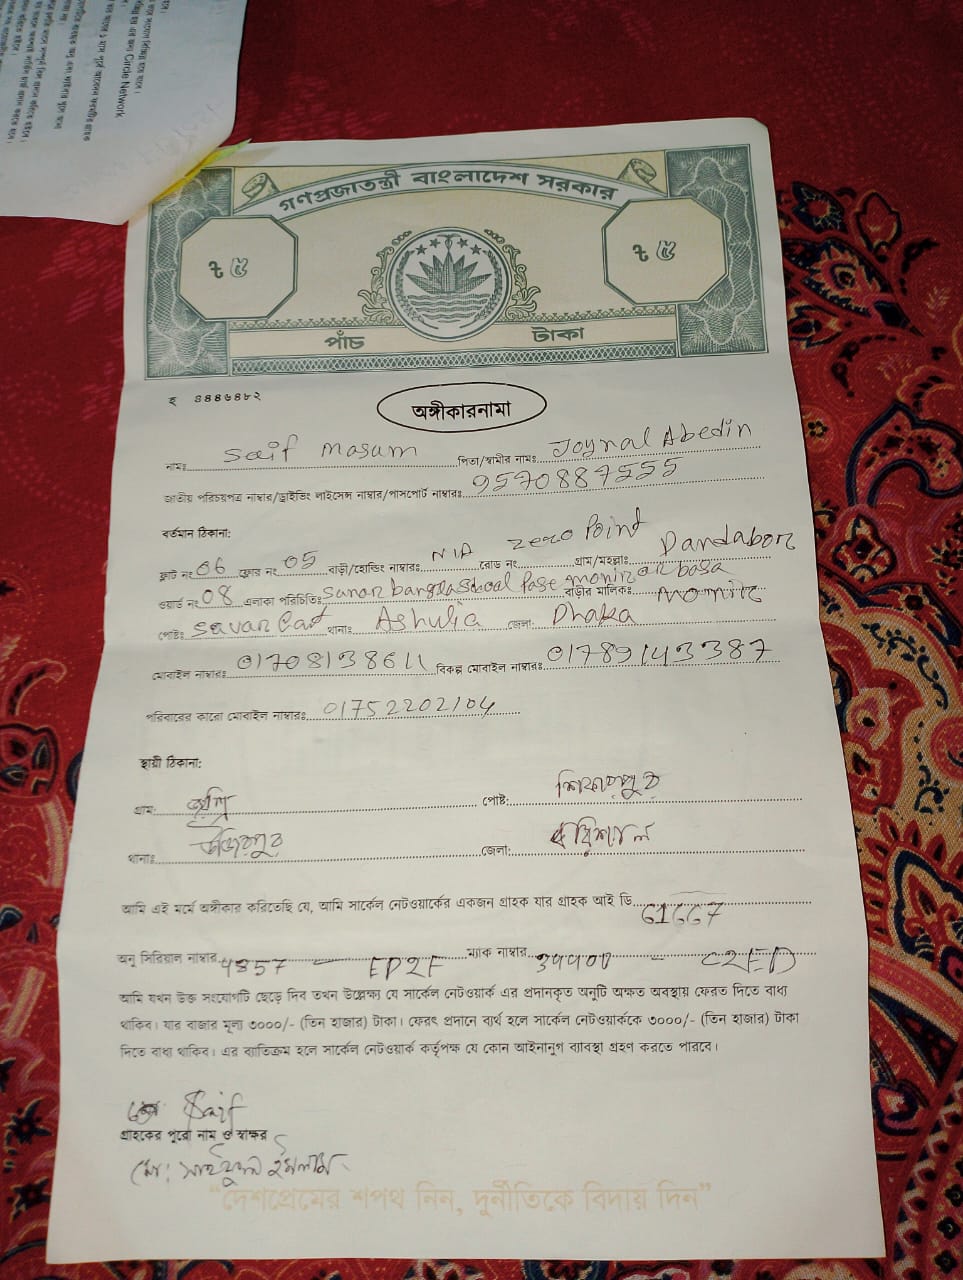 গণপ্রজাতন্ত্রী বাংলাদেশ সরকার
৳ ৫
৳ ৫
পাঁচ টাকা
অঙ্গীকারনামা
নামঃ Saif Masum পিতা/স্বামীর নামঃ Joynal Abedin
জাতীয় পরিচয়পত্র নাম্বার/ড্রাইভিং লাইসেন্স নাম্বার/পাসপোর্ট নাম্বারঃ 9570887555
বর্তমান ঠিকানা:
ফ্লাট নং 06 ফ্লোর নং 05 বাড়ী/হোল্ডিং নাম্বারঃ N/A রোড নং Zero Point গ্রাম/মহল্লাঃ Dandabor
ওয়ার্ড নং 08 এলাকা পরিচিতিঃ বাড়ীর মালিকঃ Monir
পোষ্টঃ Savar Cant থানাঃ Ashulia জেলা: Dhaka
মোবাইল নাম্বারঃ 01708138611 বিকল্প মোবাইল নাম্বারঃ 01789143387
পরিবারের কারো মোবাইল নাম্বারঃ 01752202104
স্থায়ী ঠিকানা:
গ্রাম: পোষ্ট: শিকারপুর
থানাঃ উজিরপুর জেলা: বরিশাল
আমি এই মর্মে অঙ্গীকার করিতেছি যে, আমি সার্কেল নেটওয়ার্কের একজন গ্রাহক যার গ্রাহক আই ডি 61667
অনু সিরিয়াল নাম্বার 4857 - ED2F ম্যাক নাম্বার - C2ED
আমি যখন উক্ত সংযোগটি ছেড়ে দিব তখন উল্লেক্ষ্য যে সার্কেল নেটওয়ার্ক এর প্রদানকৃত অনুটি অক্ষত অবস্থায় ফেরত দিতে বাধ্য
থাকিব। যার বাজার মূল্য ৩০০০/- (তিন হাজার) টাকা। ফেরৎ প্রদানে ব্যর্থ হলে সার্কেল নেটওয়ার্ককে ৩০০০/- (তিন হাজার) টাকা
দিতে বাধ্য থাকিব। এর ব্যতিক্রম হলে সার্কেল নেটওয়ার্ক কর্তৃপক্ষ যে কোন আইনানুগ ব্যবস্থা গ্রহণ করতে পারবে।
Saif
গ্রাহকের পুরো নাম ও স্বাক্ষর
মো: সাইফুল ইসলাম
“দেশপ্রেমের শপথ নিন, দুর্নীতিকে বিদায় দিন”